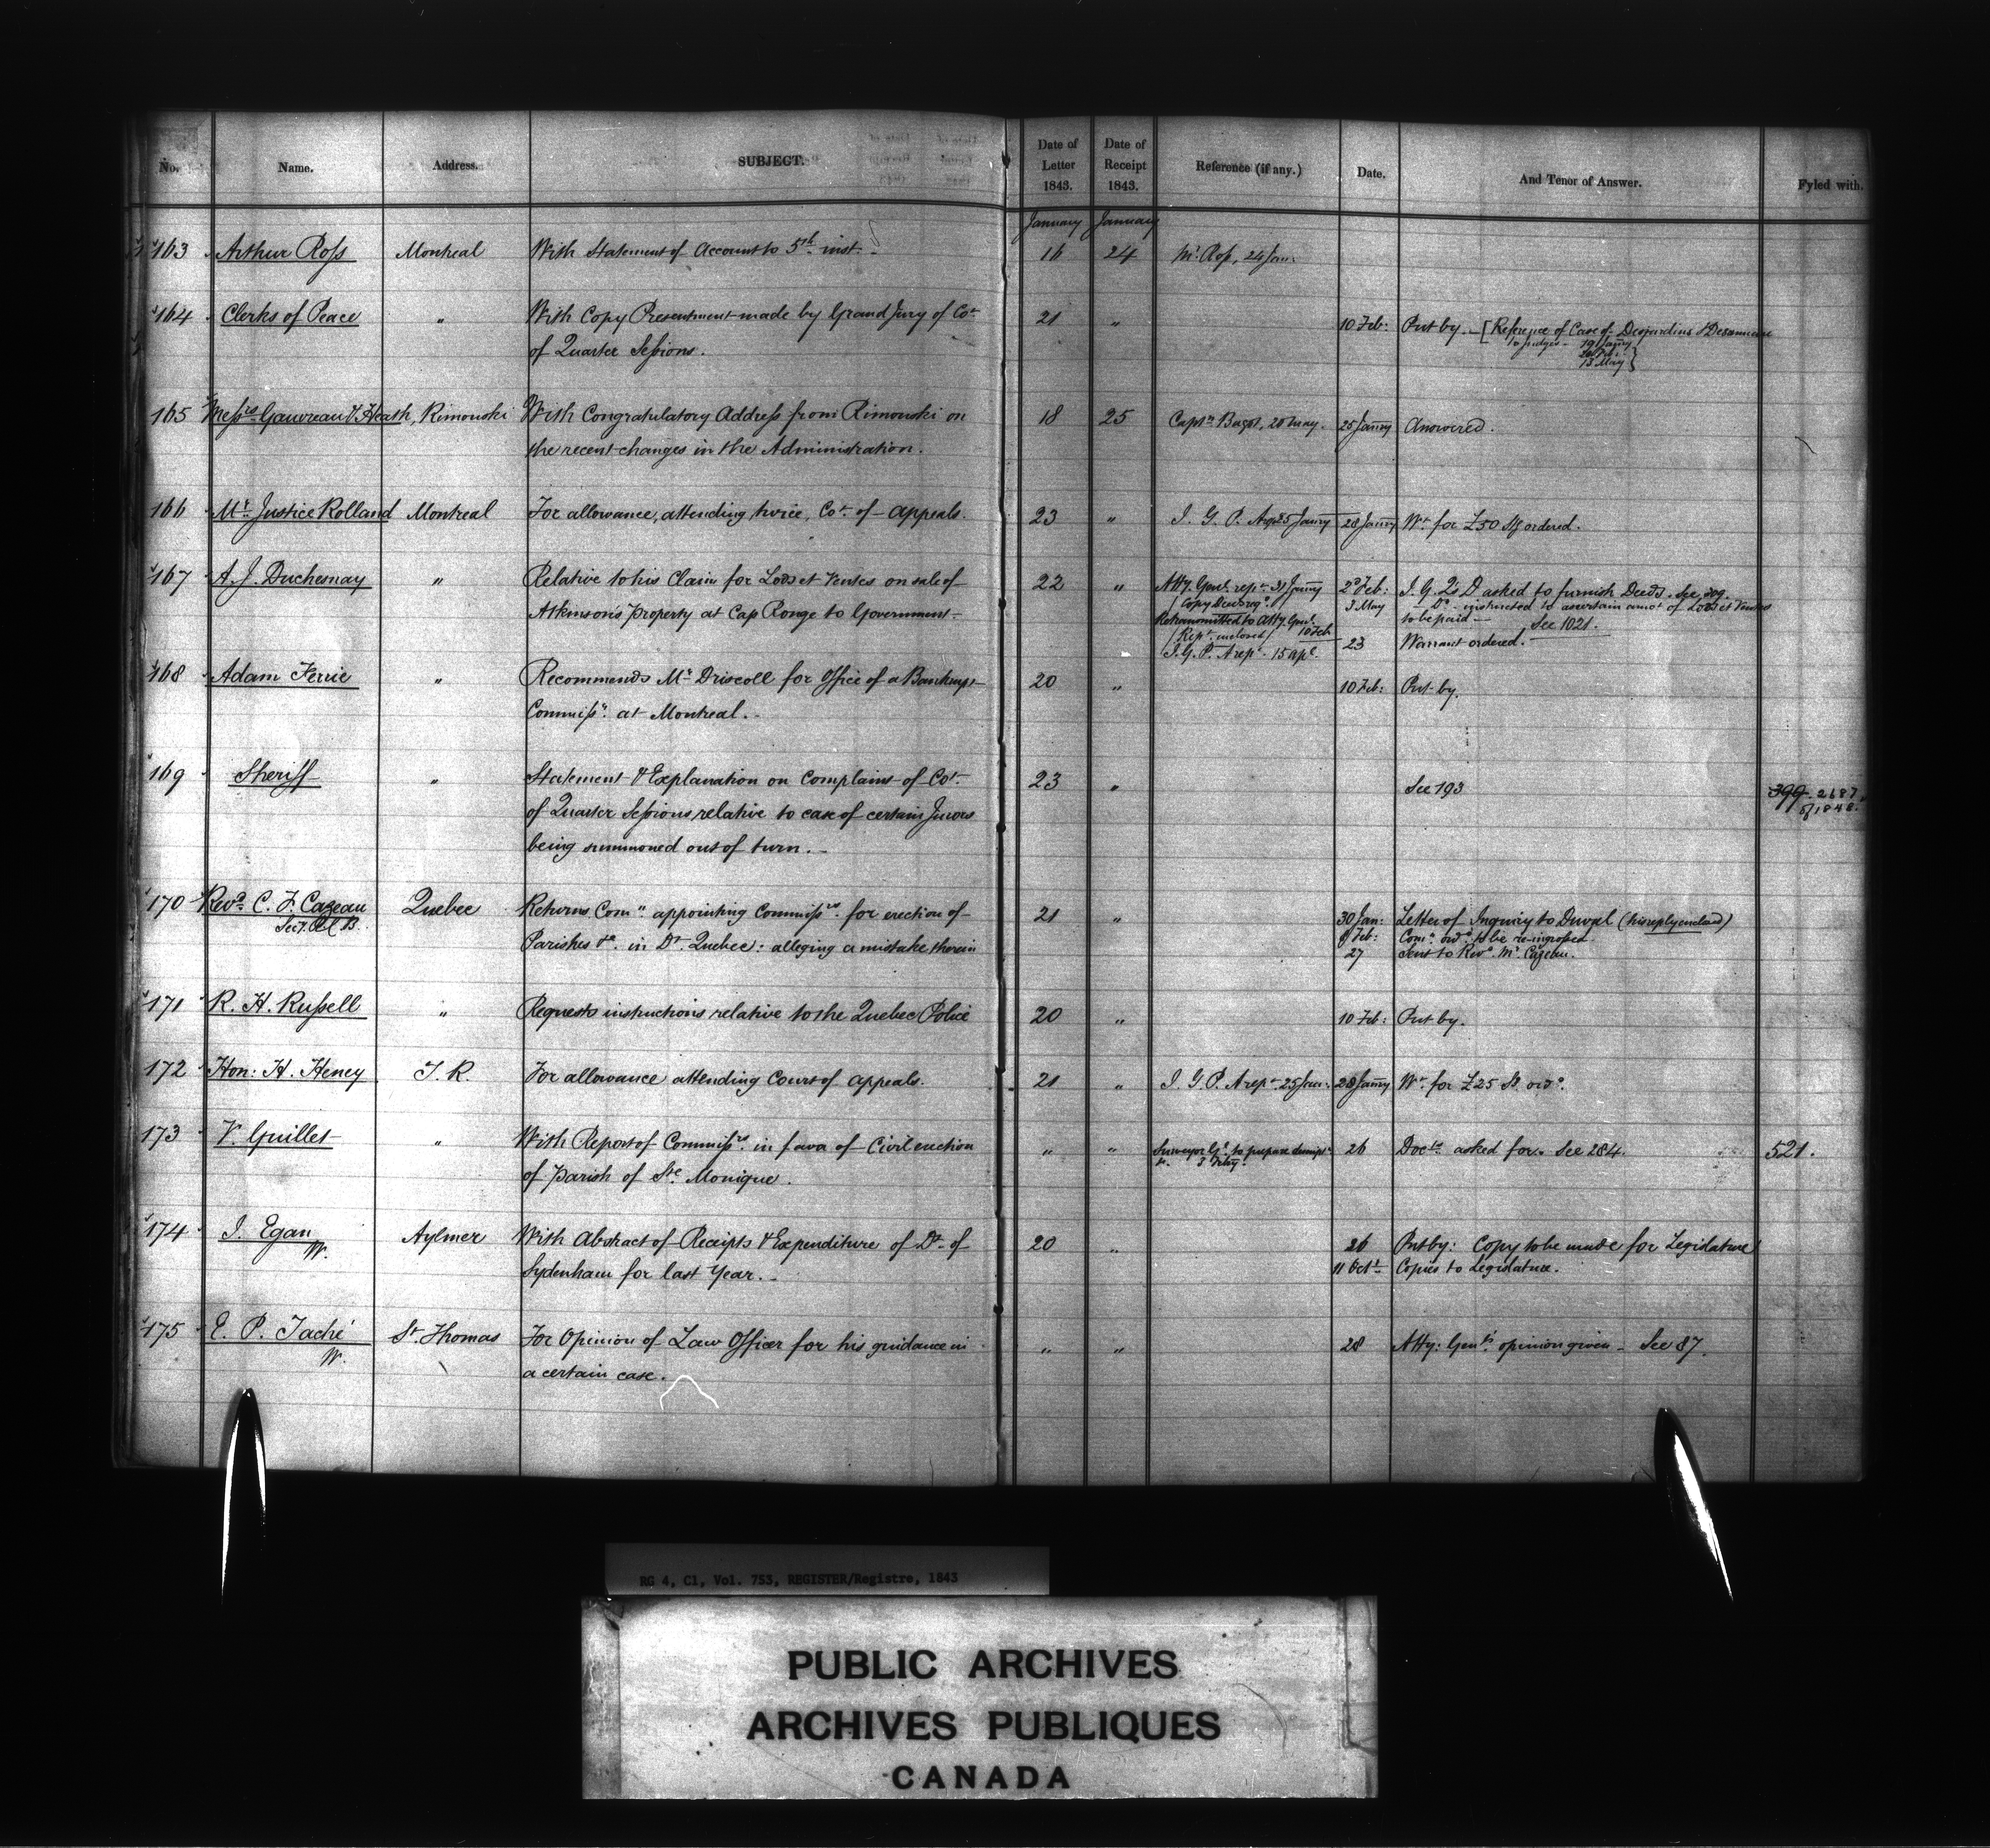 No. Name. Address. SUBJECT. Date of Letter 1843. Date of Receipt 1843. Reference (if any.) Date. And Tenor of Answer. Fyled with.
January January
163 Arthur Ross Montreal With Statement of Account to 5th inst. 16 24 Mr. Ross, 24 Jan:
164 Clerks of Peace " With Copy Presentment made by Grand Jury of Cot. 21 " 10 Feb: Put by. [Reference of Case of Desjardins &
of Quarter Sessions. to judges 19 Janry
13 May}
165 Messrs Gauvreau & Heath, Rimouski With Congratulatory Address from Rimouski on 18 25 Captn. Bagot, 20 May. 25 Janry Answered.
the recent changes in the Administration.
166 Mr. Justice Rolland Montreal For allowance, attending twice, Cot. of Appeals. 23 " I. G. P. A 25 Janry 28 Janry Wt. for £50 Stg ordered.
167 A. J. Duchesnay " Relative to his Claim for Lods et Ventes on sale of 22 " Atty. Genl. rept. 31 Janry 2d Feb: I. G. Q's D asked to furnish Deeds. See
(Copy Deeds reqd.) 3 May Do. instructed to ascertain amot. of Lods et Ventes
Atkinson's property at Cap Rouge to Government. Retransmitted to Atty. Genl. to be paid — See 1021.
(Rept. enclosed) 10 Feb 23 Warrant ordered.
I. G. P. A rept. 15 Apl.
168 Adam Ferrie " Recommends Mr. Driscoll for Office of a Bankrupt 20 " 10 Feb: Put by.
Commissr. at Montreal.
169 Sheriff " Statement & Explanation on Complaint of Cot. 23 " See 193 399 2687
of Quarter Sessions relative to case of certain Jurors of 1848.
being summoned out of turn.
170 Revd. C. F. Cazeau Quebec Returns Comn. appointing Commissrs. for erection of 21 " 30 Jan: Letter of Inquiry to Duval (his reply enclosed)
Parishes &c. in Dt. Quebec: alleging a mistake therein 9 Feb: Comn. ordd. to be re-ingrossed
27 Sent to Revd. Mr. Cazeau.
171 R. H. Russell " Requests instructions relative to the Quebec Police 20 " 10 Feb: Put by.
172 Hon: H. Heney T. R. For allowance attending Court of Appeals. 21 " I. G. P. A rept. 25 Jan: 28 Janry Wt. for £25 St. ordd.
173 V. Guillet " With Report of Commissrs. in favor of Civil erection " " Surveyor Gl. to prepare descript. 26 Docts. asked for. See 284. 521.
of Parish of Ste. Monique.
174 J. Egan Aylmer With Abstract of Receipts & Expenditure of Dt. of 20 " 26 Put by: Copy to be made for Legislature
W. Sydenham for last Year. 11 Octr. Copies to Legislature.
175 E. P. Taché St. Thomas For Opinion of Law Officer for his guidance in " " 28 Atty: Genl's. opinion given — See 87.
W. a certain case.
RG 4, C1, Vol. 753, REGISTER/Registre, 1843
PUBLIC ARCHIVES
ARCHIVES PUBLIQUES
CANADA